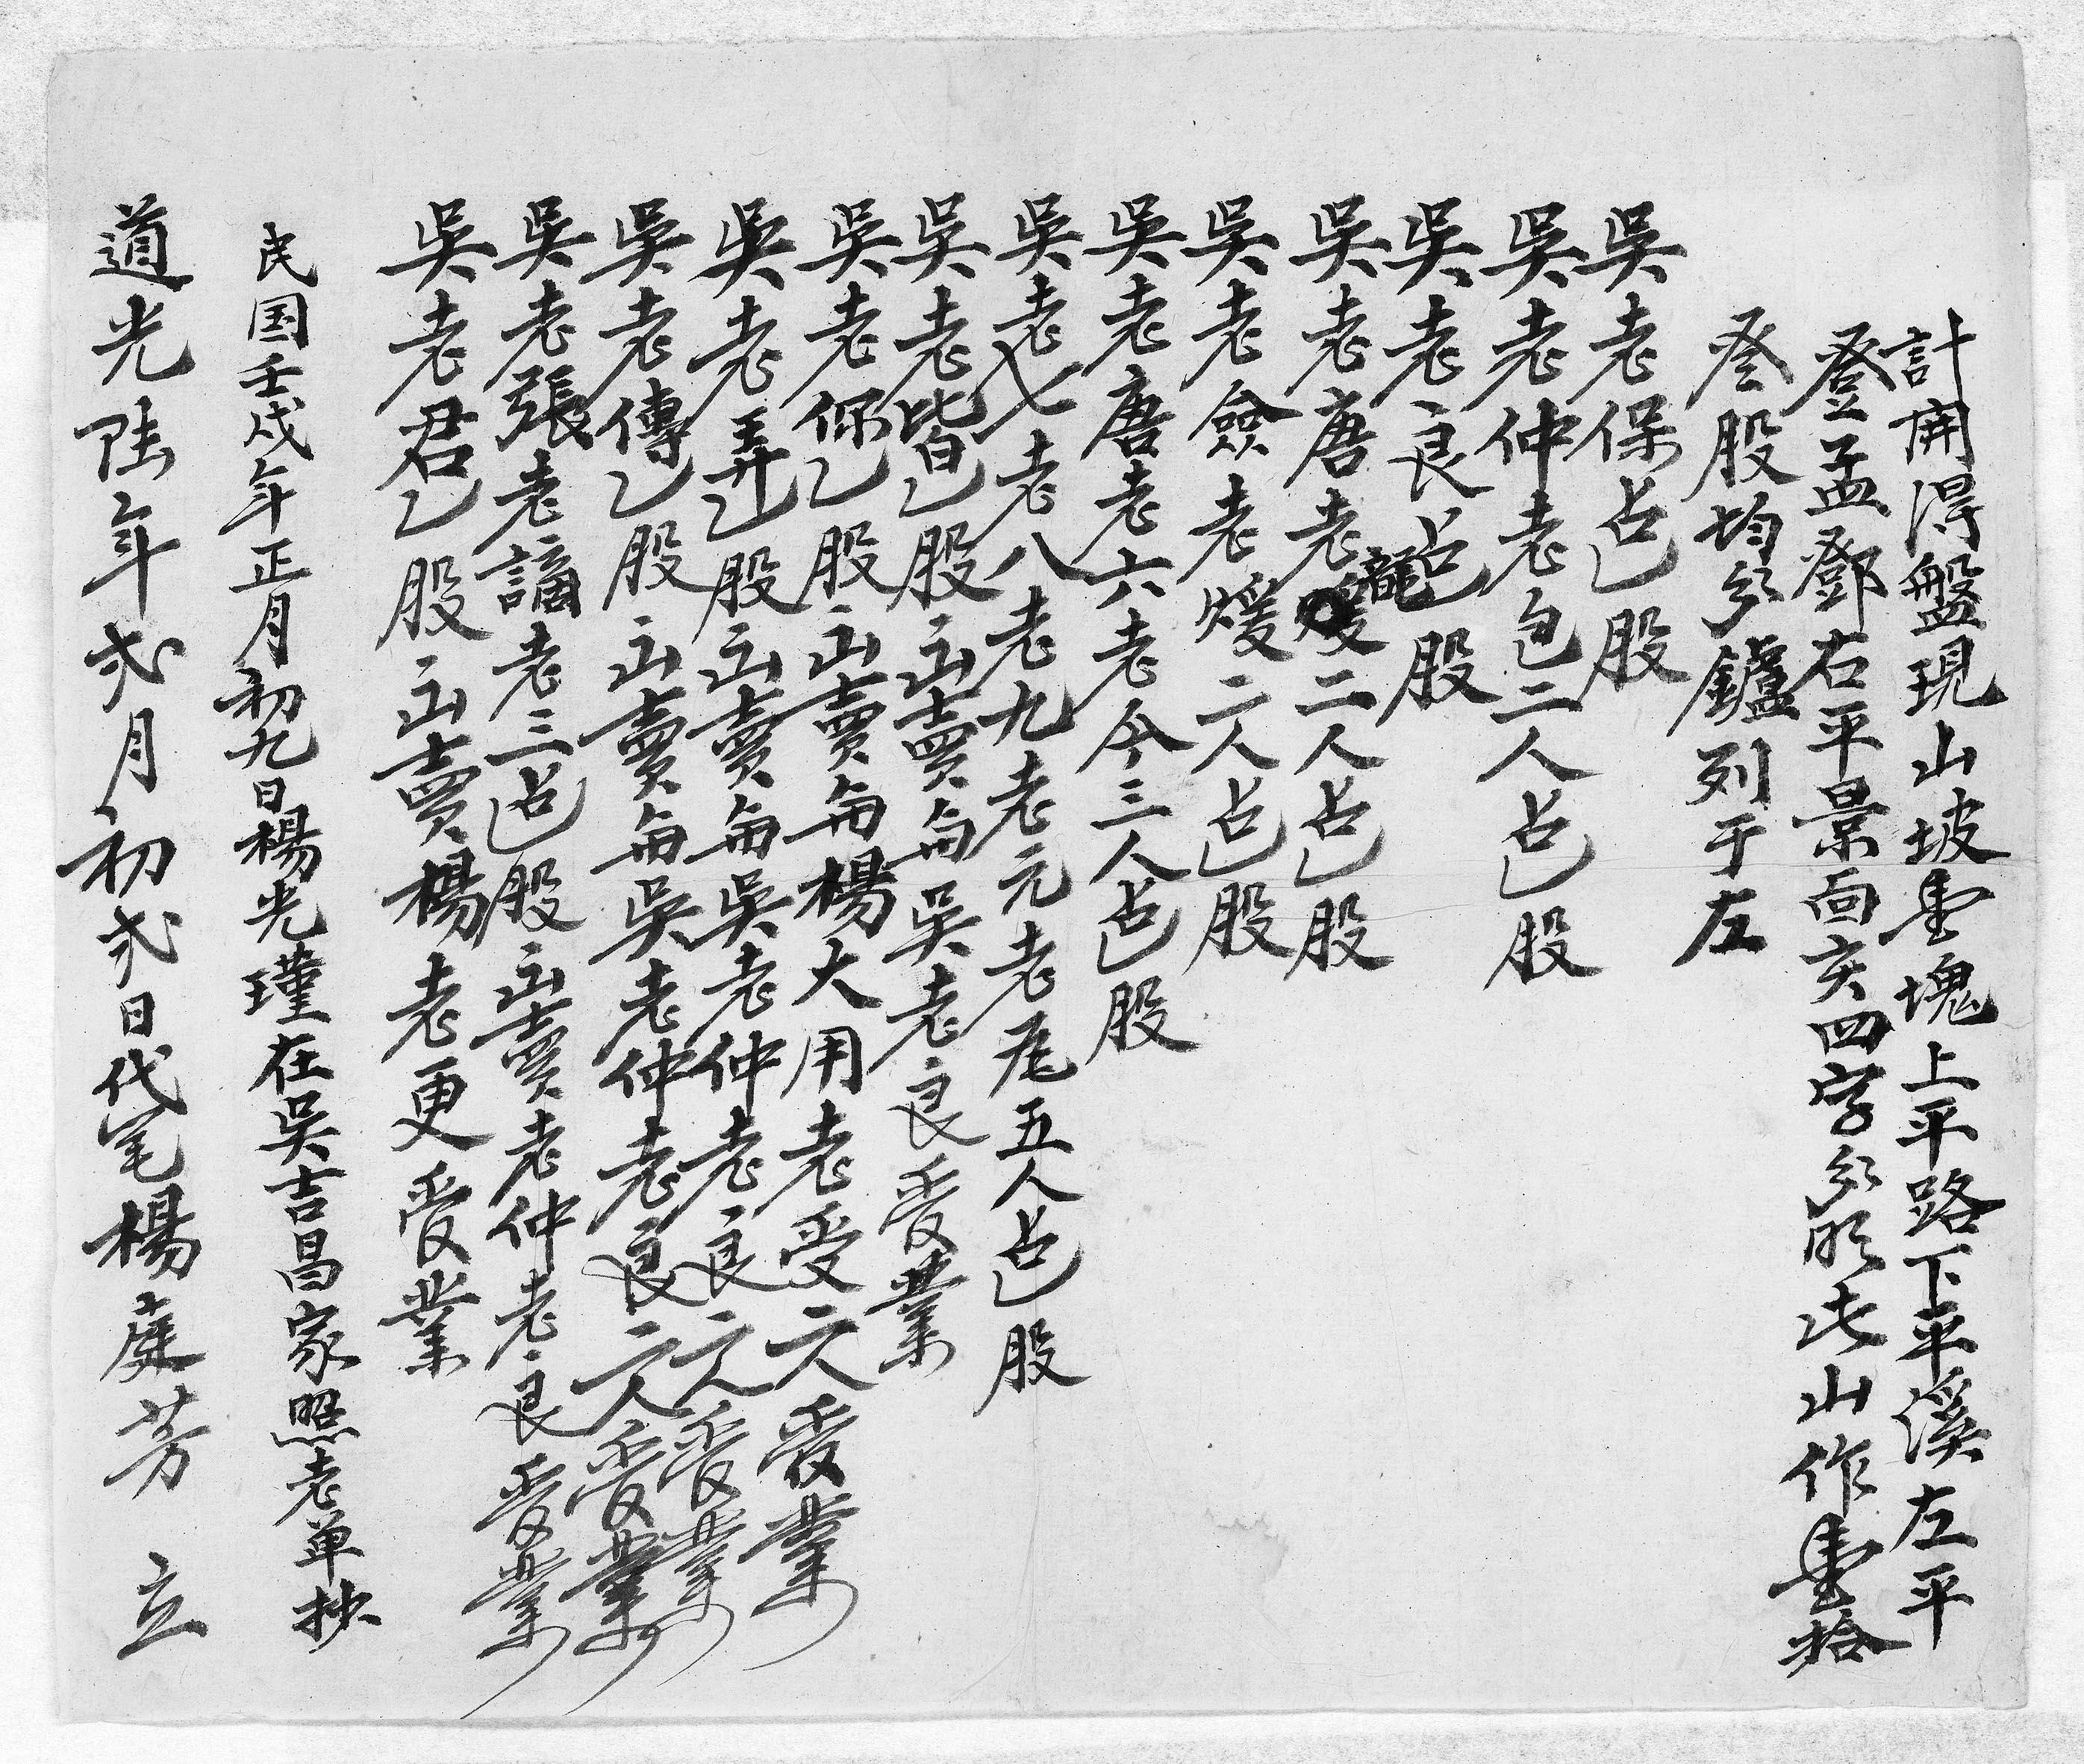 計開淂盤現山坡壹塊上平路下平溪左平
登孟鄧右平景向亥四字分明此山作壹拾
叁股均分鑪列于左
吳老保占乙股
吳老仲老包二人占乙股
吳老良占乙股
吳老唐老龍二人占乙股
吳老僉老煖二人占乙股
吳老唐老六老今三人占乙股
吳老七老八老九老元老尾五人占乙股
吳老皆乙股山賣与吳老良受業
吳老你乙股山賣與楊大用老受二人受業
吳老弄乙股山賣與吳老仲老良二人受業
吳老傳乙股山賣與吳老仲老良二人受業
吳老張老謫老三占乙股山賣老仲老良受業
吳老君乙股山賣楊老更受業
民国壬戌年正月初九日楊光瑾在吳吉昌家照老单抄
道光陸年弍月初弍日代笔楊庭芳 立